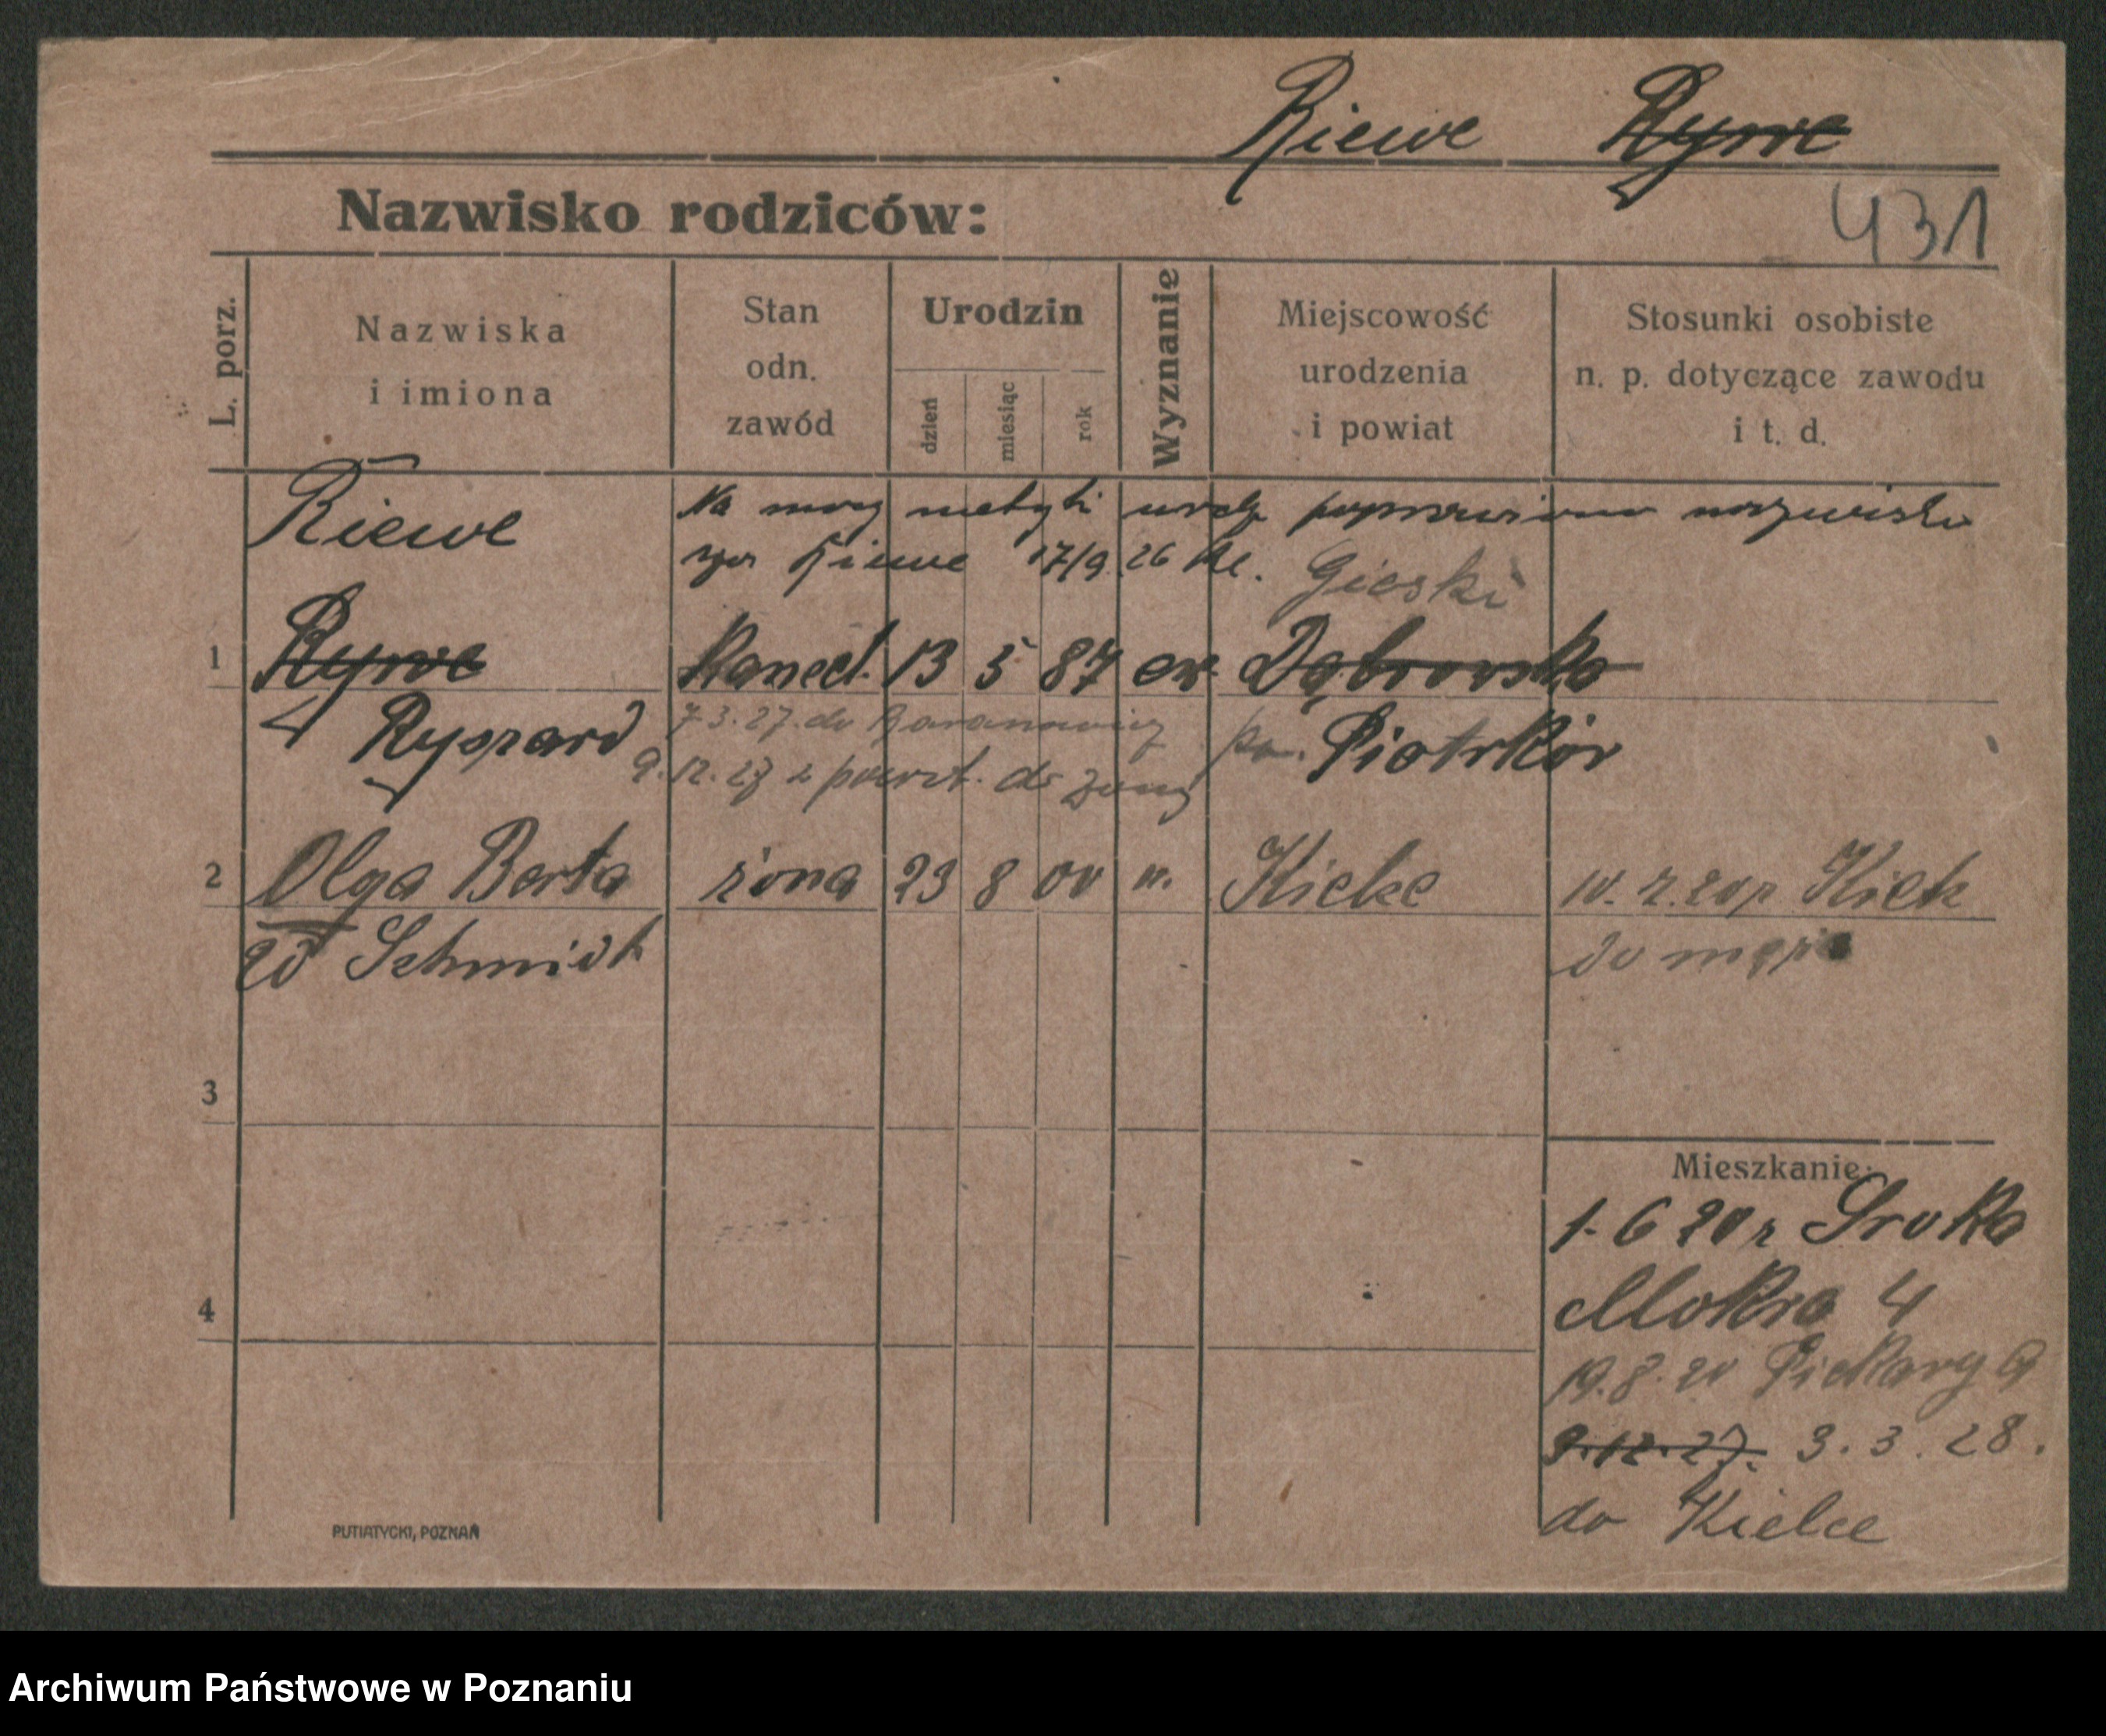 Riewe Rywe
Nazwisko rodziców:
431
L. porz.
Nazwiska
i imiona
Stan
odn.
zawód
Urodzin
dzień
miesiąc
rok
Wyznanie
Miejscowość
urodzenia
i powiat
Stosunki osobiste
n. p. dotyczące zawodu
i t. d.
Riewe
Na mocy metryki urodz poprawiono nazwisko
na Riewe 17/9.26
Gieski
1 Rywe 13 5 87 ew. Dąbrowska
Ryszard
7.3.27. do Baranowicz
Piotrków
9.12.27 z powrt. do żony
2 Olga Berta żona 23 8 00 Kielce
10.7.20r Kielc
Schmidt
do męża
3
4
Mieszkanie:
1.6 20r Sroka
Mokra 4
19.8.20 Piekary 9
9.12.27. 3.3.28.
do Kielce
PUTIATYCKI, POZNAŃ
Archiwum Państwowe w Poznaniu